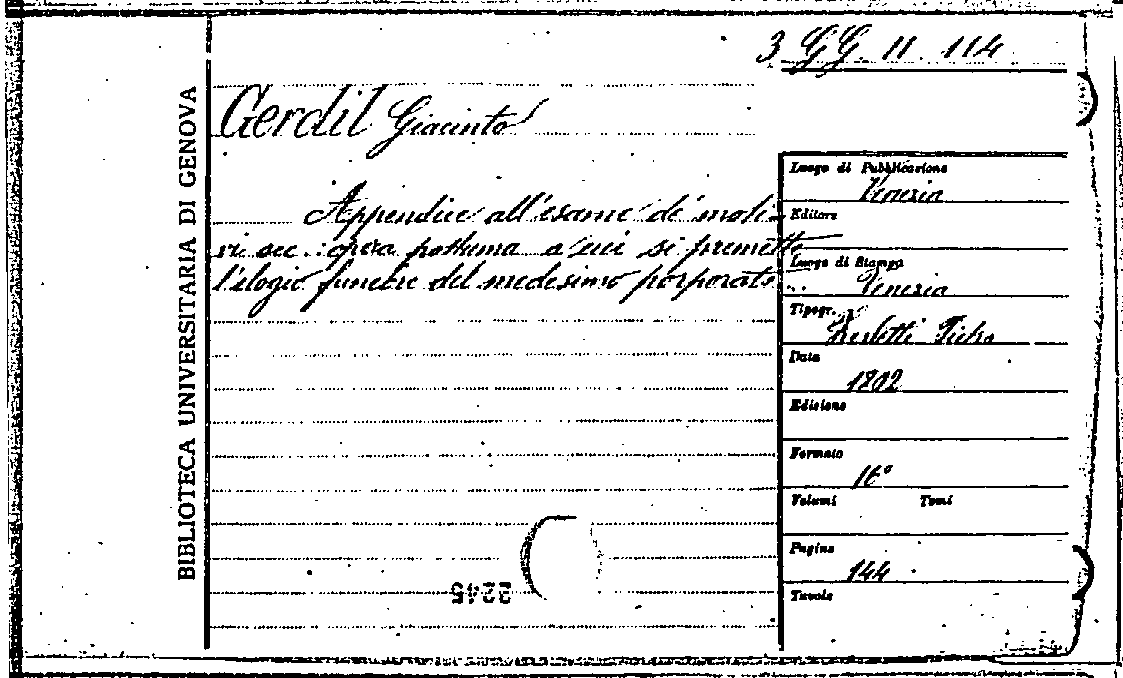 3 GG. 11. 114
BIBLIOTECA UNIVERSITARIA DI GENOVA
Gerdil Giacinto
Appendice all'esame de' moti-
vi ecc.: opera postuma a cui si premette
l'elogio funebre del medesimo porporato...
Luogo di Pubblicazione
Venezia
Editore
Luogo di Stampa
Venezia
Tipogr.
Zerletti Pietro
Data
1802
Edizione
Formato
16°
Volumi Tomi
Pagine
144
Tavole
2245